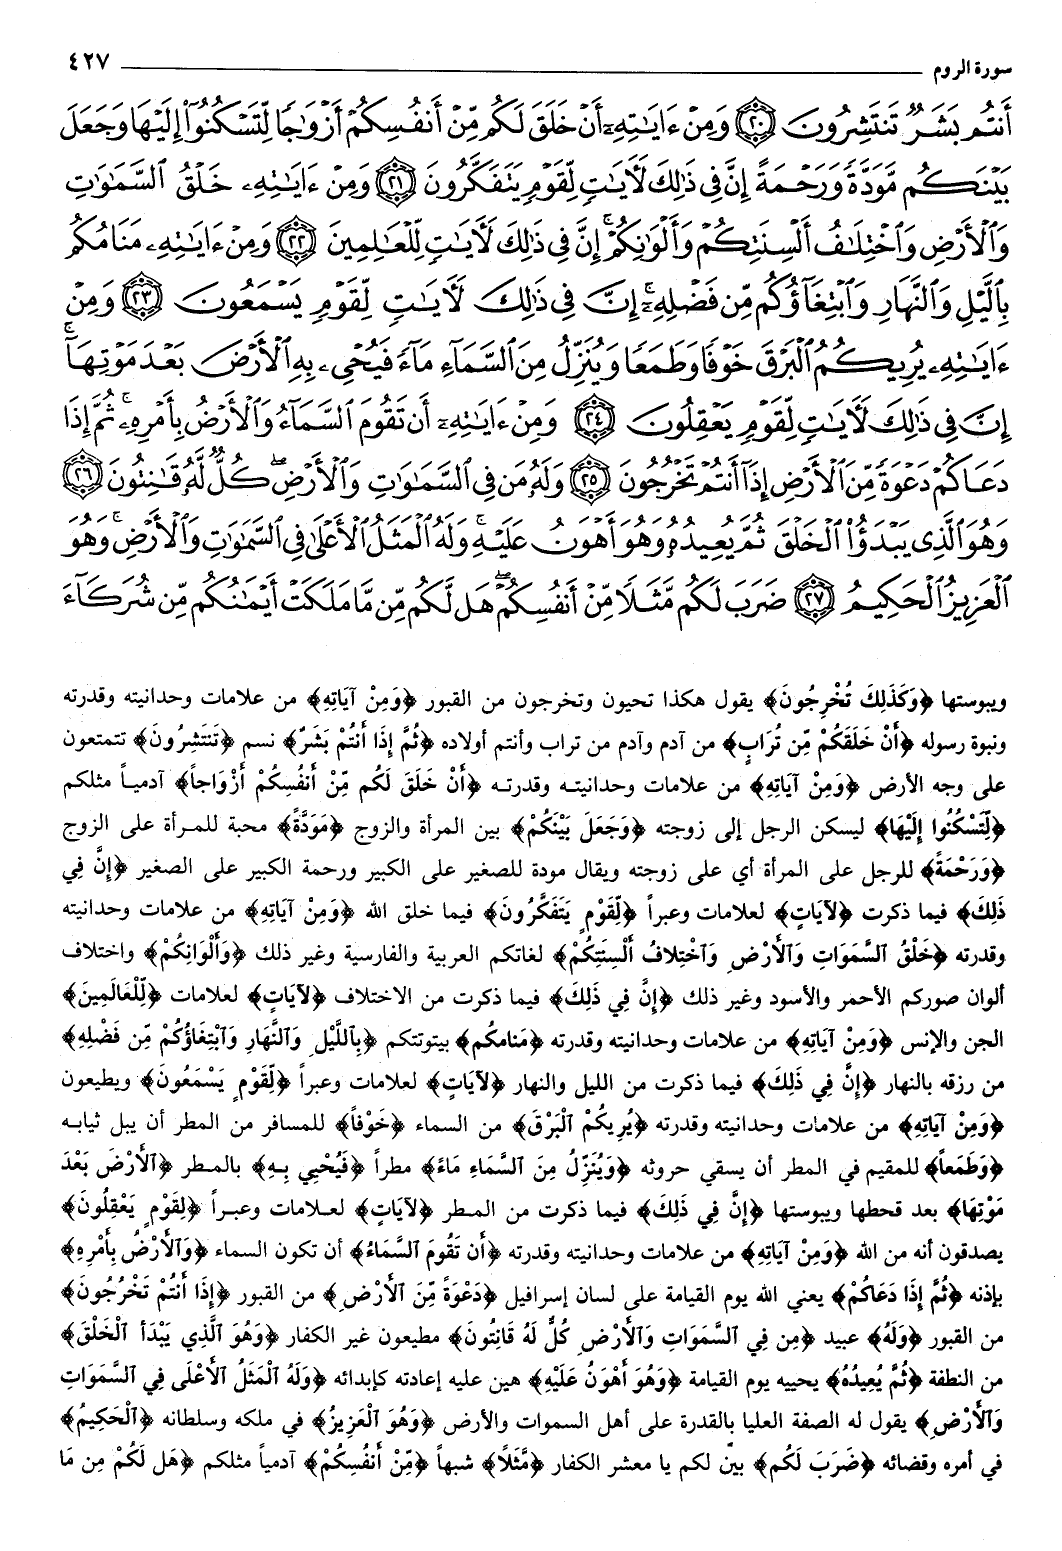 سورة الروم ٤٢٧
أَنتُم بَشَرٌ تَنتَشِرُونَ ﴿٢٠﴾ وَمِنْ ءَايَٰتِهِۦٓ أَنْ خَلَقَ لَكُم مِّنْ أَنفُسِكُمْ أَزْوَٰجًا لِّتَسْكُنُوٓا۟ إِلَيْهَا وَجَعَلَ
بَيْنَكُم مَّوَدَّةً وَرَحْمَةً إِنَّ فِى ذَٰلِكَ لَءَايَٰتٍ لِّقَوْمٍ يَتَفَكَّرُونَ ﴿٢١﴾ وَمِنْ ءَايَٰتِهِۦ خَلْقُ ٱلسَّمَٰوَٰتِ
وَٱلْأَرْضِ وَٱخْتِلَٰفُ أَلْسِنَتِكُمْ وَأَلْوَٰنِكُمْ ۚ إِنَّ فِى ذَٰلِكَ لَءَايَٰتٍ لِّلْعَٰلِمِينَ ﴿٢٢﴾ وَمِنْ ءَايَٰتِهِۦ مَنَامُكُم
بِٱلَّيْلِ وَٱلنَّهَارِ وَٱبْتِغَآؤُكُم مِّن فَضْلِهِۦٓ ۚ إِنَّ فِى ذَٰلِكَ لَءَايَٰتٍ لِّقَوْمٍ يَسْمَعُونَ ﴿٢٣﴾ وَمِنْ
ءَايَٰتِهِۦ يُرِيكُمُ ٱلْبَرْقَ خَوْفًا وَطَمَعًا وَيُنَزِّلُ مِنَ ٱلسَّمَآءِ مَآءً فَيُحْىِۦ بِهِ ٱلْأَرْضَ بَعْدَ مَوْتِهَآ ۚ
إِنَّ فِى ذَٰلِكَ لَءَايَٰتٍ لِّقَوْمٍ يَعْقِلُونَ ﴿٢٤﴾ وَمِنْ ءَايَٰتِهِۦٓ أَن تَقُومَ ٱلسَّمَآءُ وَٱلْأَرْضُ بِأَمْرِهِۦ ۚ ثُمَّ إِذَا
دَعَاكُمْ دَعْوَةً مِّنَ ٱلْأَرْضِ إِذَآ أَنتُمْ تَخْرُجُونَ ﴿٢٥﴾ وَلَهُۥ مَن فِى ٱلسَّمَٰوَٰتِ وَٱلْأَرْضِ ۖ كُلٌّ لَّهُۥ قَٰنِتُونَ ﴿٢٦﴾
وَهُوَ ٱلَّذِى يَبْدَؤُا۟ ٱلْخَلْقَ ثُمَّ يُعِيدُهُۥ وَهُوَ أَهْوَنُ عَلَيْهِ ۚ وَلَهُ ٱلْمَثَلُ ٱلْأَعْلَىٰ فِى ٱلسَّمَٰوَٰتِ وَٱلْأَرْضِ ۚ وَهُوَ
ٱلْعَزِيزُ ٱلْحَكِيمُ ﴿٢٧﴾ ضَرَبَ لَكُم مَّثَلًا مِّنْ أَنفُسِكُمْ ۖ هَل لَّكُم مِّن مَّا مَلَكَتْ أَيْمَٰنُكُم مِّن شُرَكَآءَ
ويبوستها ﴿وَكَذٰلِكَ تُخْرَجُونَ﴾ يقول هكذا تحيون وتخرجون من القبور ﴿وَمِنْ آيَاتِهِ﴾ من علامات وحدانيته وقدرته
ونبوة رسوله ﴿أَنْ خَلَقَكُمْ مِّن تُرَابٍ﴾ من آدم وآدم من تراب وأنتم أولاده ﴿ثُمَّ إِذَا أَنْتُمْ بَشَرٌ﴾ نسم ﴿تَنتَشِرُونَ﴾ تتمتعون
على وجه الأرض ﴿وَمِنْ آيَاتِهِ﴾ من علامات وحدانيته وقدرته ﴿أَنْ خَلَقَ لَكُم مِّنْ أَنْفُسِكُمْ أَزْوَاجاً﴾ آدمياً مثلكم
﴿لِّتَسْكُنُوا إِلَيْهَا﴾ ليسكن الرجل إلى زوجته ﴿وَجَعَلَ بَيْنَكُمْ﴾ بين المرأة والزوج ﴿مَوَدَّةً﴾ محبة للمرأة على الزوج
﴿وَرَحْمَةً﴾ للرجل على المرأة أي على زوجته ويقال مودة للصغير على الكبير ورحمة الكبير على الصغير ﴿إِنَّ فِي
ذَلِكَ﴾ فيما ذكرت ﴿لآيَاتٍ﴾ لعلامات وعبراً ﴿لِّقَوْمٍ يَتَفَكَّرُونَ﴾ فيما خلق الله ﴿وَمِنْ آيَاتِهِ﴾ من علامات وحدانيته
وقدرته ﴿خَلْقُ ٱلسَّمَوَاتِ وَٱلأَرْضِ وَٱخْتِلاَفُ أَلْسِنَتِكُمْ﴾ لغاتكم العربية والفارسية وغير ذلك ﴿وَأَلْوَانِكُمْ﴾ واختلاف
ألوان صوركم الأحمر والأسود وغير ذلك ﴿إِنَّ فِي ذَلِكَ﴾ فيما ذكرت من الاختلاف ﴿لآيَاتٍ﴾ لعلامات ﴿لِّلْعَالَمِينَ﴾
الجن والإنس ﴿وَمِنْ آيَاتِهِ﴾ من علامات وحدانيته وقدرته ﴿مَنَامُكُم﴾ بيتوتتكم ﴿بِاللَّيْلِ وَٱلنَّهَارِ وَٱبْتِغَاؤُكُمْ مِّن فَضْلِهِ﴾
من رزقه بالنهار ﴿إِنَّ فِي ذَلِكَ﴾ فيما ذكرت من الليل والنهار ﴿لآيَاتٍ﴾ لعلامات وعبراً ﴿لِّقَوْمٍ يَسْمَعُونَ﴾ ويطيعون
﴿وَمِنْ آيَاتِهِ﴾ من علامات وحدانيته وقدرته ﴿يُرِيكُمْ ٱلْبَرْقَ﴾ من السماء ﴿خَوْفاً﴾ للمسافر من المطر أن يبل ثيابه
﴿وَطَمَعاً﴾ للمقيم في المطر أن يسقي حروثه ﴿وَيُنَزِّلُ مِنَ ٱلسَّمَاءِ مَاءً﴾ مطراً ﴿فَيُحْيِي بِهِ﴾ بالمطر ﴿ٱلأَرْضَ بَعْدَ
مَوْتِهَا﴾ بعد قحطها ويبوستها ﴿إِنَّ فِي ذَلِكَ﴾ فيما ذكرت من المطر ﴿لآيَاتٍ﴾ لعلامات وعبراً ﴿لِقَوْمٍ يَعْقِلُونَ﴾
يصدقون أنه من الله ﴿وَمِنْ آيَاتِهِ﴾ من علامات وحدانيته وقدرته ﴿أَن تَقُومَ ٱلسَّمَاءُ﴾ أن تكون السماء ﴿وَٱلأَرْضُ بِأَمْرِهِ﴾
بإذنه ﴿ثُمَّ إِذَا دَعَاكُمْ﴾ يعني الله يوم القيامة على لسان إسرافيل ﴿دَعْوَةً مِّنَ ٱلأَرْضِ﴾ من القبور ﴿إِذَا أَنتُمْ تَخْرُجُونَ﴾
من القبور ﴿وَلَهُ﴾ عبيد ﴿مِن فِي ٱلسَّمَوَاتِ وَٱلأَرْضِ كُلٌّ لَهُ قَانِتُونَ﴾ مطيعون غير الكفار ﴿وَهُوَ ٱلَّذِي يَبْدَأ ٱلْخَلْقَ﴾
من النطفة ﴿ثُمَّ يُعِيدُهُ﴾ يحييه يوم القيامة ﴿وَهُوَ أَهْوَنُ عَلَيْهِ﴾ هين عليه إعادته كإبدائه ﴿وَلَهُ ٱلْمَثَلُ ٱلأَعْلَى فِي ٱلسَّمَوَاتِ
وَٱلأَرْضِ﴾ يقول له الصفة العليا بالقدرة على أهل السموات والأرض ﴿وَهُوَ ٱلْعَزِيزُ﴾ في ملكه وسلطانه ﴿ٱلْحَكِيمُ﴾
في أمره وقضائه ﴿ضَرَبَ لَكُم﴾ بيّن لكم يا معشر الكفار ﴿مَّثَلًا﴾ شبهاً ﴿مِّنْ أَنفُسِكُمْ﴾ آدمياً مثلكم ﴿هَل لَكُمْ مِن مَا